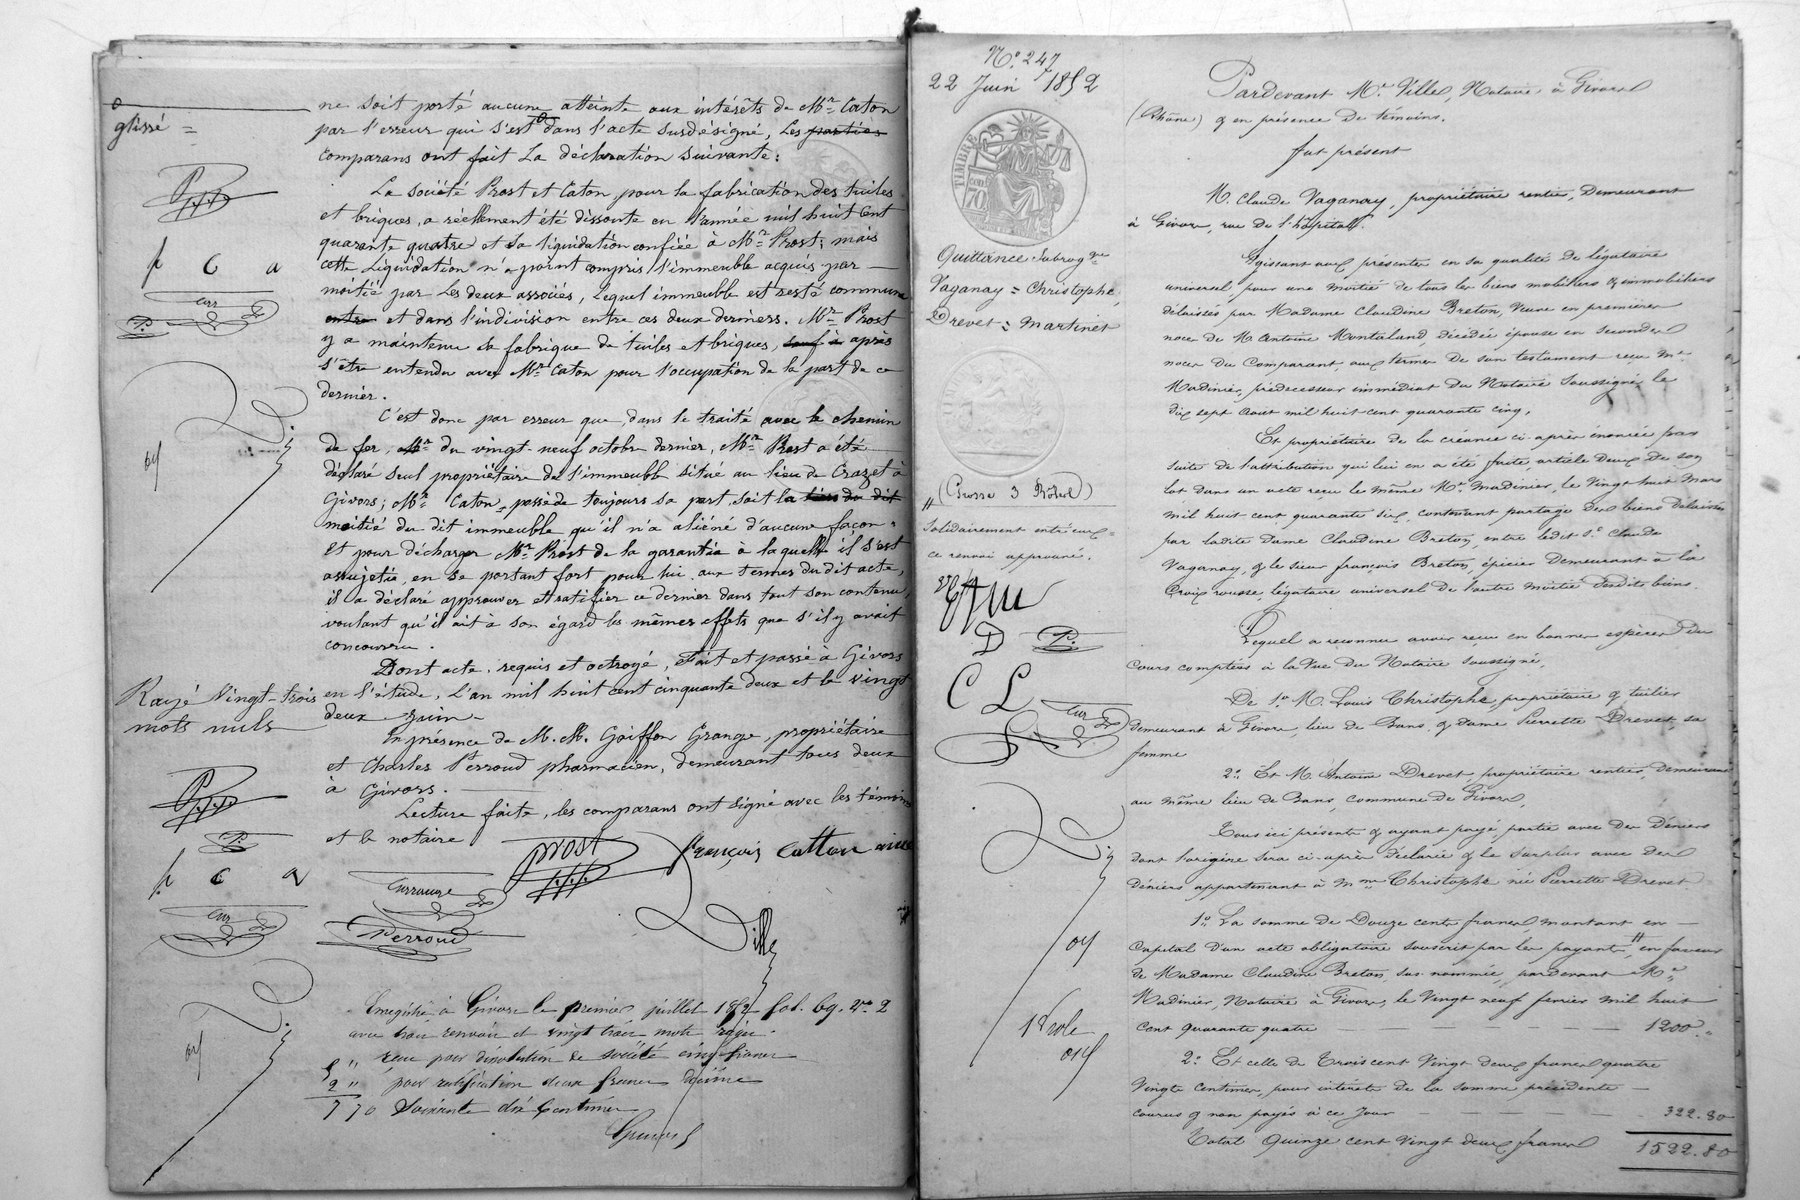 glissé =
ne soit porté aucune atteinte aux intérêts de Mr. Caton
par l'erreur qui s'est dans l'acte susdésigné, Les parties
comparans ont fait La déclaration suivante :
La société Prost et Caton, pour la fabrication des tuiles
et briques, a réellement été dissoute en l'année mil huit Cent
quarante quatre et sa liquidation confiée à Mr. Prost ; mais
cette Liquidation n'a point compris l'immeuble acquis par
moitié par Les deux associés, Lequel immeuble est resté commun
entre et dans l'indivision entre ces deux derniers. Mr. Prost
y a maintenu sa fabrique de tuiles et briques, sauf à après
s'être entendu avec Mr. Caton pour l'occupation de la part de ce
dernier.
C'est donc par erreur que, dans le traité avec le chemin
de fer, Mr. du vingt-neuf octobre dernier, Mr. Prost a été
déclaré seul propriétaire de l'immeuble situé au lieu de Crazet à
Givors ; Mr. Caton, possède toujours sa part, soit la tiers du dit
moitié du dit immeuble qu'il n'a aliéné d'aucune façon.
Et pour décharger Mr. Prost de la garantie à laquelle il s'est
assujetie, en se portant fort pour lui aux termes du dit acte,
il a déclaré approuver et ratifier ce dernier dans tout son contenu,
voulant qu'il ait à son égard les mêmes effets que s'il y avait
concouru.
Dont acte, requis et octroyé, Fait et passé à Givors
en l'étude, L'an mil huit cent cinquante deux et le vingt
deux Juin.
En présence de M. M. Goiffon Grange, propriétaire
et Charles Perroud pharmacien, demeurant tous deux
à Givors.
Lecture faite, les comparans ont signé avec les témoins
et le notaire
Rayé Vingt-trois
mots nuls
p C a
Prost
françois Catton
Perroud
Ville
Enregistré à Givors le premier juillet 1852 fol. 69. Vo. 2
avec trois renvois et vingt trois mots rayés.
5 " reçu pour dissolution de société cinq francs
2 " pour ratification deux francs décime
7 70 Soixante dix Centimes
No. 247
22 Juin 1852
TIMBRE
70
Quittance subrogque
Vaganay = Christophe
Drevet = Martinet
(Bourse 3 Rôles)
Solidairement entr'eux =
ce renvoi approuvé.
D P.
C L
1 Role
Pardevant Mr. Ville, Notaire à Givors
(Rhône) & en présence de témoins.
fut présent
M. Claude Vaganay, propriétaire rentier, Demeurant
à Givors, rue de l'hôpital.
Agissant aux présentes en sa qualité de légataire
universel pour une moitié de tous les biens mobiliers & immobiliers
délaissés par Madame Claudine Breton, Veuve en premières
noces de M. Antoine Montaland, décédée épouse en secondes
noces du Comparant, aux termes de son testament reçu Me
Madinier, prédécesseur immédiat du Notaire Soussigné, le
dix sept aout mil huit cent quarante cinq,
Et propriétaire de la créance ci-après énoncée par
suite de l'attribution qui lui en a été faite, article Deux de son
lot dans un acte reçu le même Mr. Madinier, le Vingt huit Mars
mil huit cent quarante six, contenant partage des biens délaissés
par ladite Dame Claudine Breton, entre ledit Sr. Claude
Vaganay, & le sieur françois Breton, épicier Demeurant à la
Croix rousse, légataire universel de l'autre moitié desdits biens.
Lequel a reconnu avoir reçu en bonnes espèces du
cours comptées à la Vue du Notaire soussigné,
De 1o. M. Louis Christophe, propriétaire & tuilier
demeurant à Givors, lieu de Bans, & dame Pierrette Drevet, sa
femme
2o. Et M. Antoine Drevet, propriétaire rentier, demeurant
au même lieu de Bans, commune de Givors,
Tous ici présents & ayant payé, partie avec des Déniers
dont l'origine sera ci-après déclarée & le surplus avec des
déniers appartenant à Mme. Christophe née Pierrette Drevet
1o. La somme de Douze cents francs, montant en
Capital d'un acte obligatoire souscrit par les payants, en faveur
de Madame Claudine Breton, sus-nommée, pardevant Me.
Madinier, Notaire à Givors, le Vingt neuf fevrier mil huit
Cent quarante quatre 1200 "
2o. Et celle de Trois cent Vingt deux francs quatre
Vingts centimes, pour intérêts de la somme précédente
courus & non payés à ce jour 322.80
Total Quinze cent vingt deux francs 1522.80